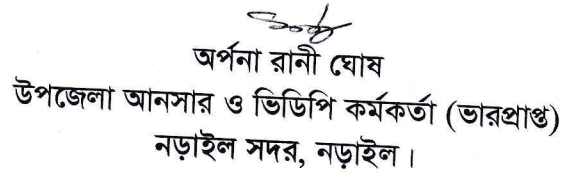 অর্পনা রানী ঘোষ
উপজেলা আনসার ও ভিডিপি কর্মকর্তা (ভারপ্রাপ্ত)
নড়াইল সদর, নড়াইল।